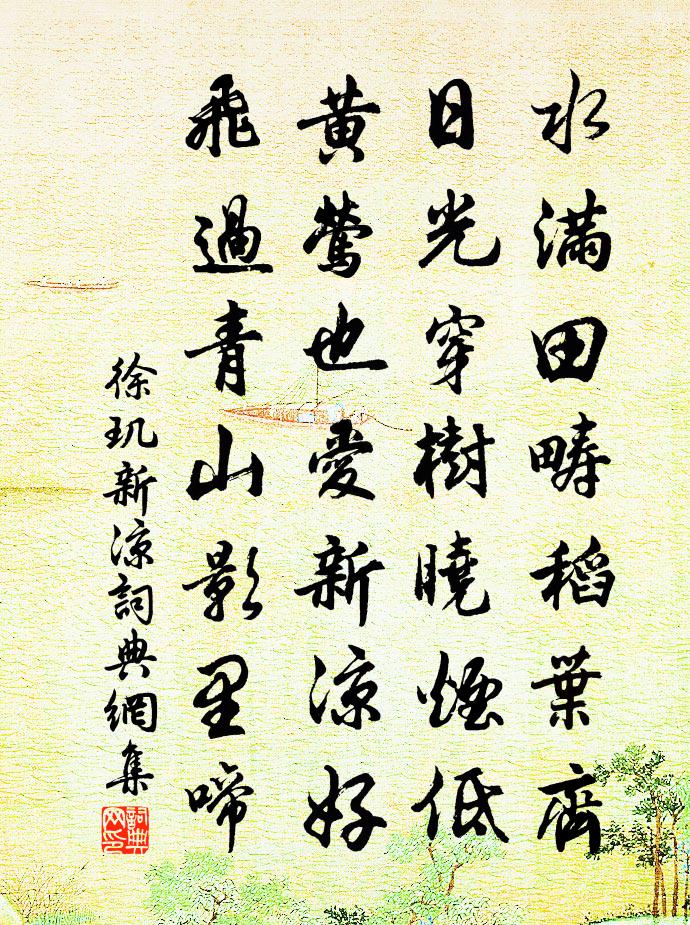 水滿田疇稻葉齊
日光穿樹曉煙低
黃鶯也愛新涼好
飛過青山影里啼
徐玑新涼詞典網集
詞典网印